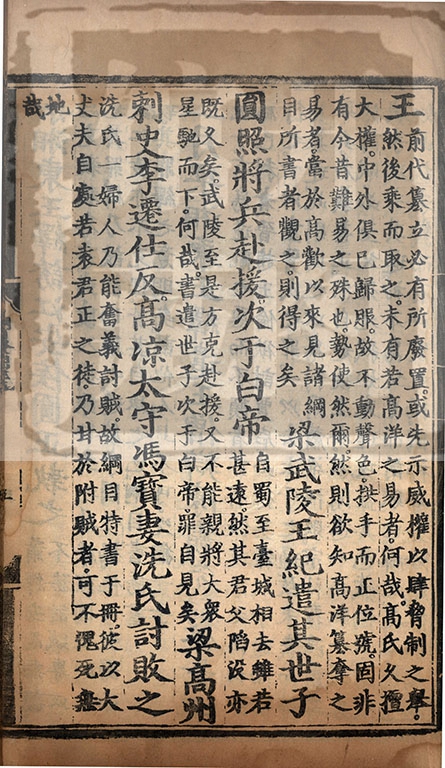 王 前代篡立必有所廢置。或先示威權以肆脅制之舉。
然後乘而取之。未有若高洋之易者。何哉。高氏久擅
大權。中外俱已歸服。故不動聲色。拱手而正位號。固非
有今昔難易之殊也。勢使然爾。然則欲知高洋篡奪之
易者。當於高歡以來見諸綱
目所書者觀之。則得之矣
梁武陵王紀遣其世子
圓照將兵赴援。次于白帝
自蜀至臺城相去雖若
甚遠。然其君父陷没亦
既久矣。武陵至是方克赴援。又不能親將大衆
星馳而下。何哉。書遣世子次于白帝。罪自見矣
梁高州
刺史李遷仕反。高凉太守馮寶妻洗氏討敗之
洗氏一婦人乃能奮義討賊。故綱目特書于冊。彼以大
丈夫自處若袁君正之徒。乃甘於附賊者。可不愧死無
地
哉